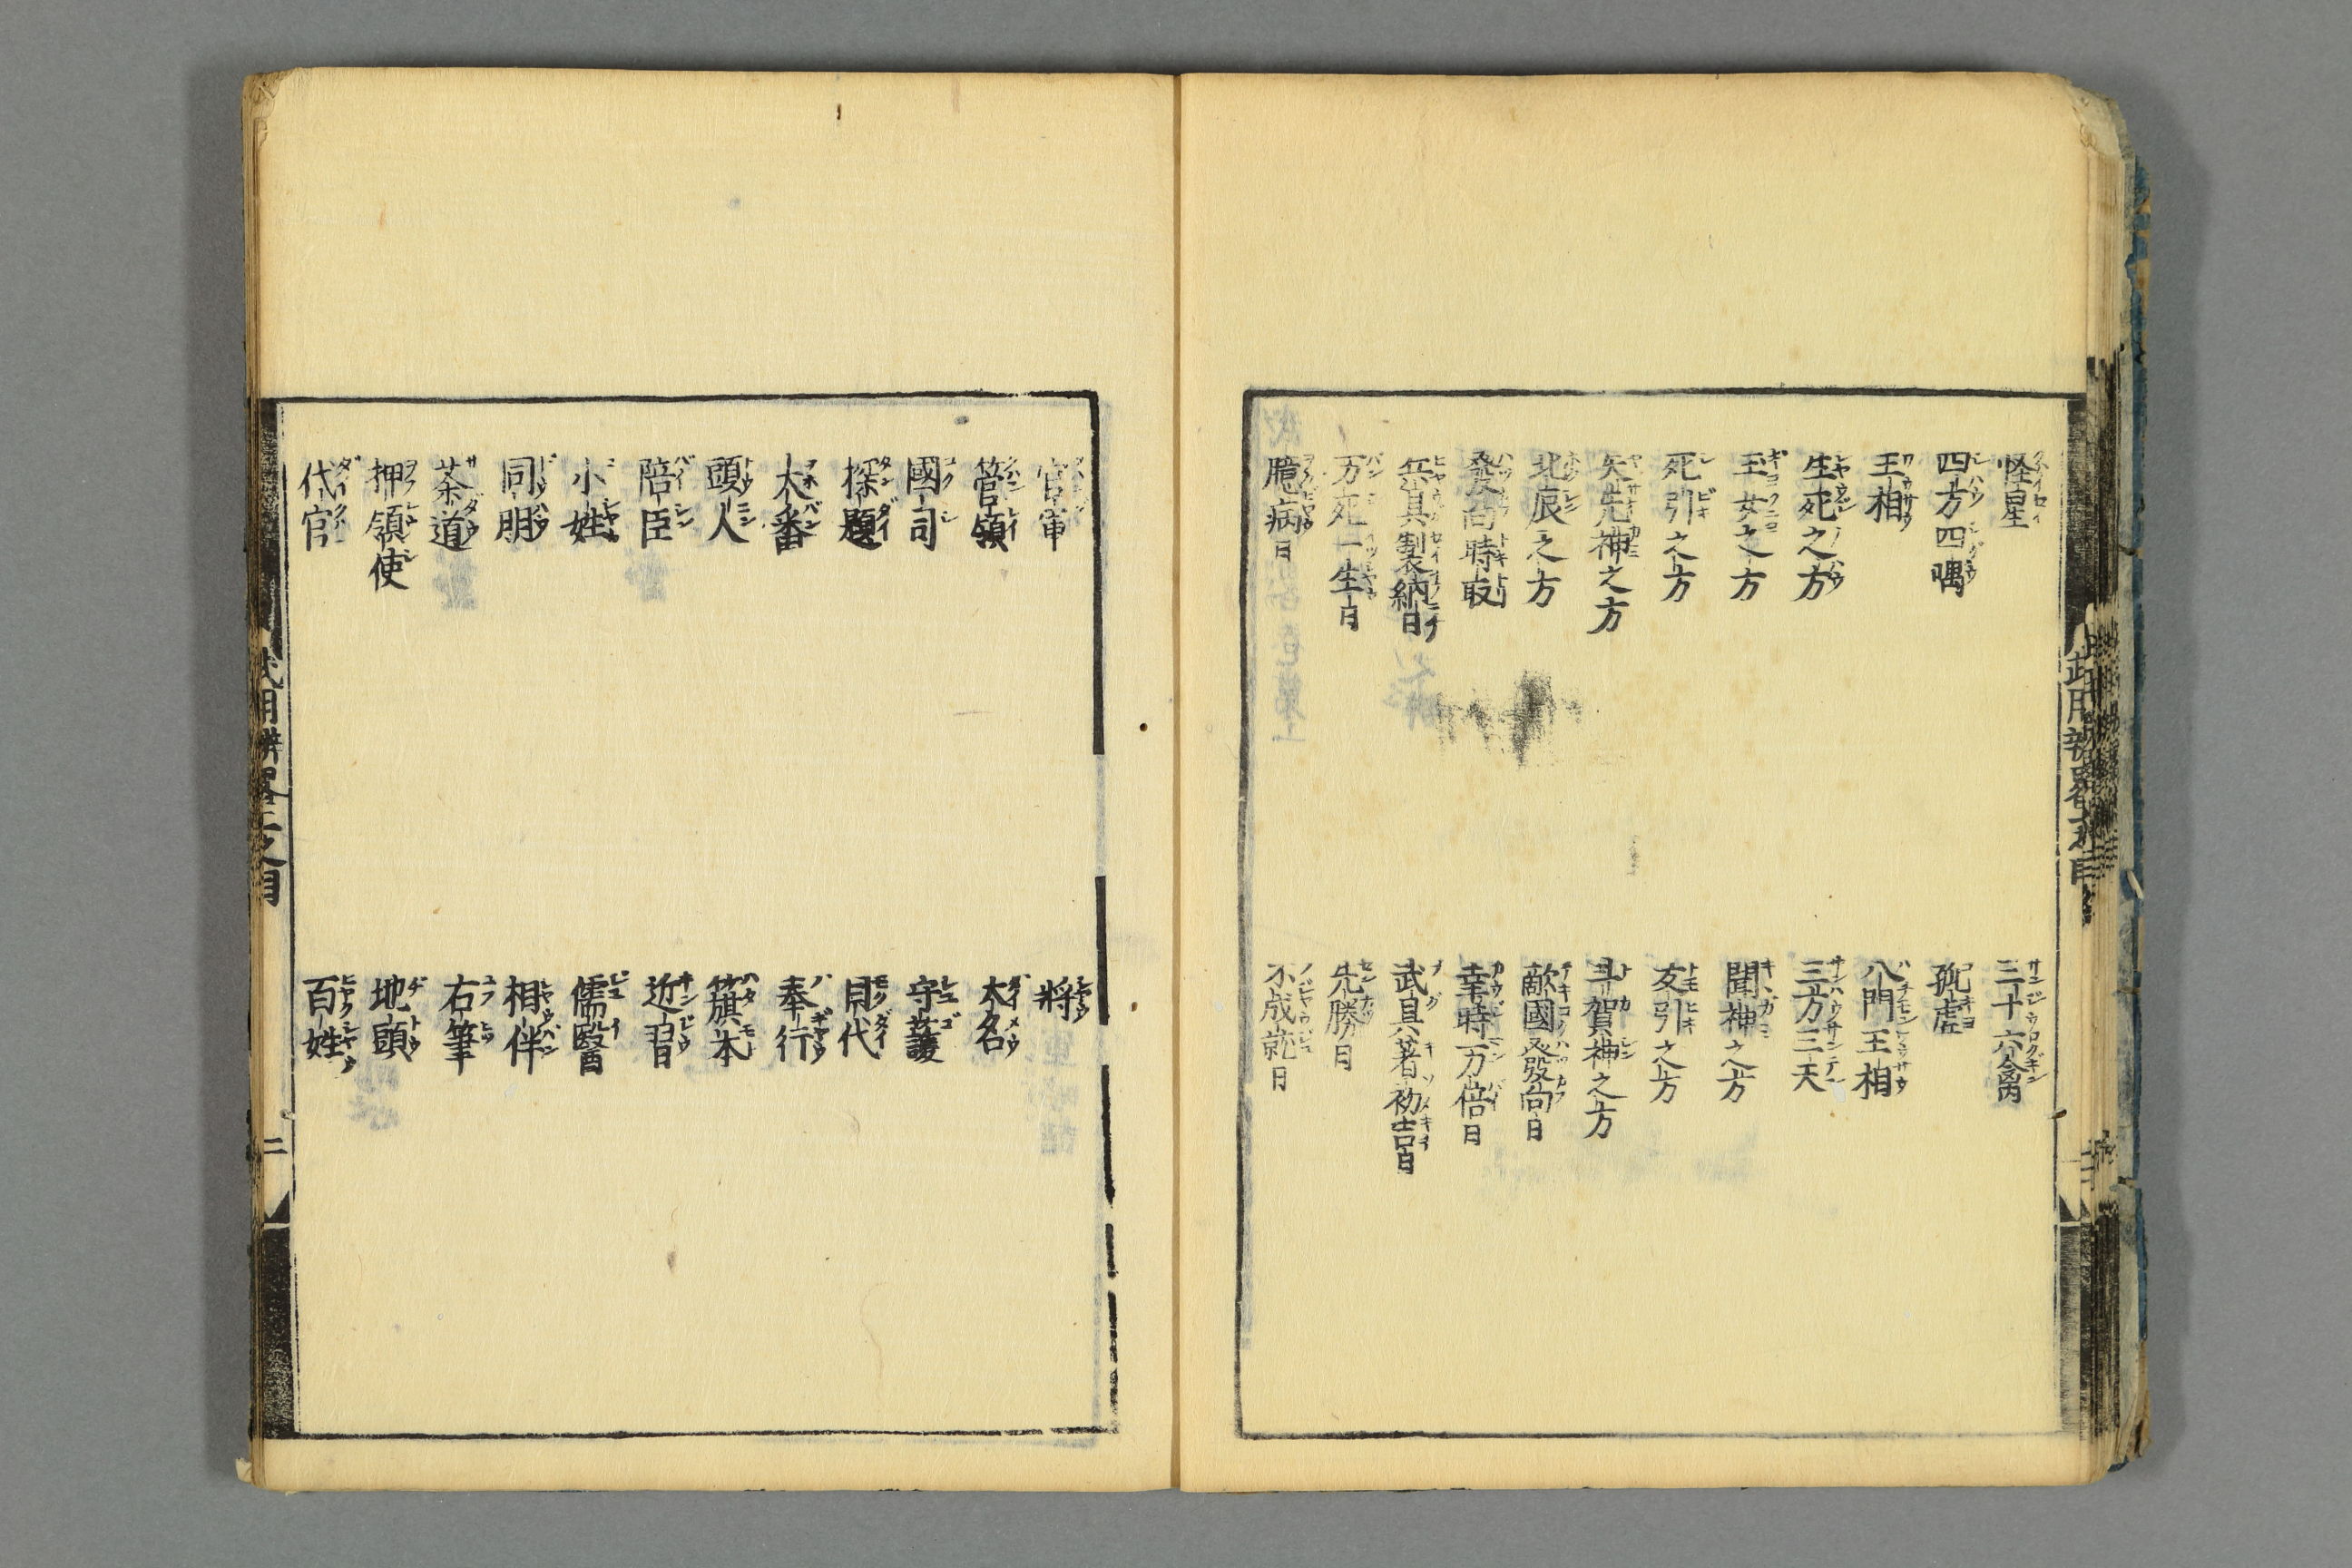 怪星
三十六禽
四方四隅
孤虚
王相
八門王相
生死之方
三方三天
玉女之方
聞神之方
死引之方
友引之方
矢先神之方
斗賀神之方
北辰之方
敵國ヘ發向日
發向時取
幸時万倍日
兵具製納日
武具著初吉日
万死一生日
先勝日
臆病日
不成就日
官軍
將
管領
大名
國司
守護
探題
目代
大番
奉行
頭人
籏本
陪臣
近習
小姓
儒醫
同朋
相伴
茶道
右筆
押領使
地頭
代官
百姓
武用辨畧
二